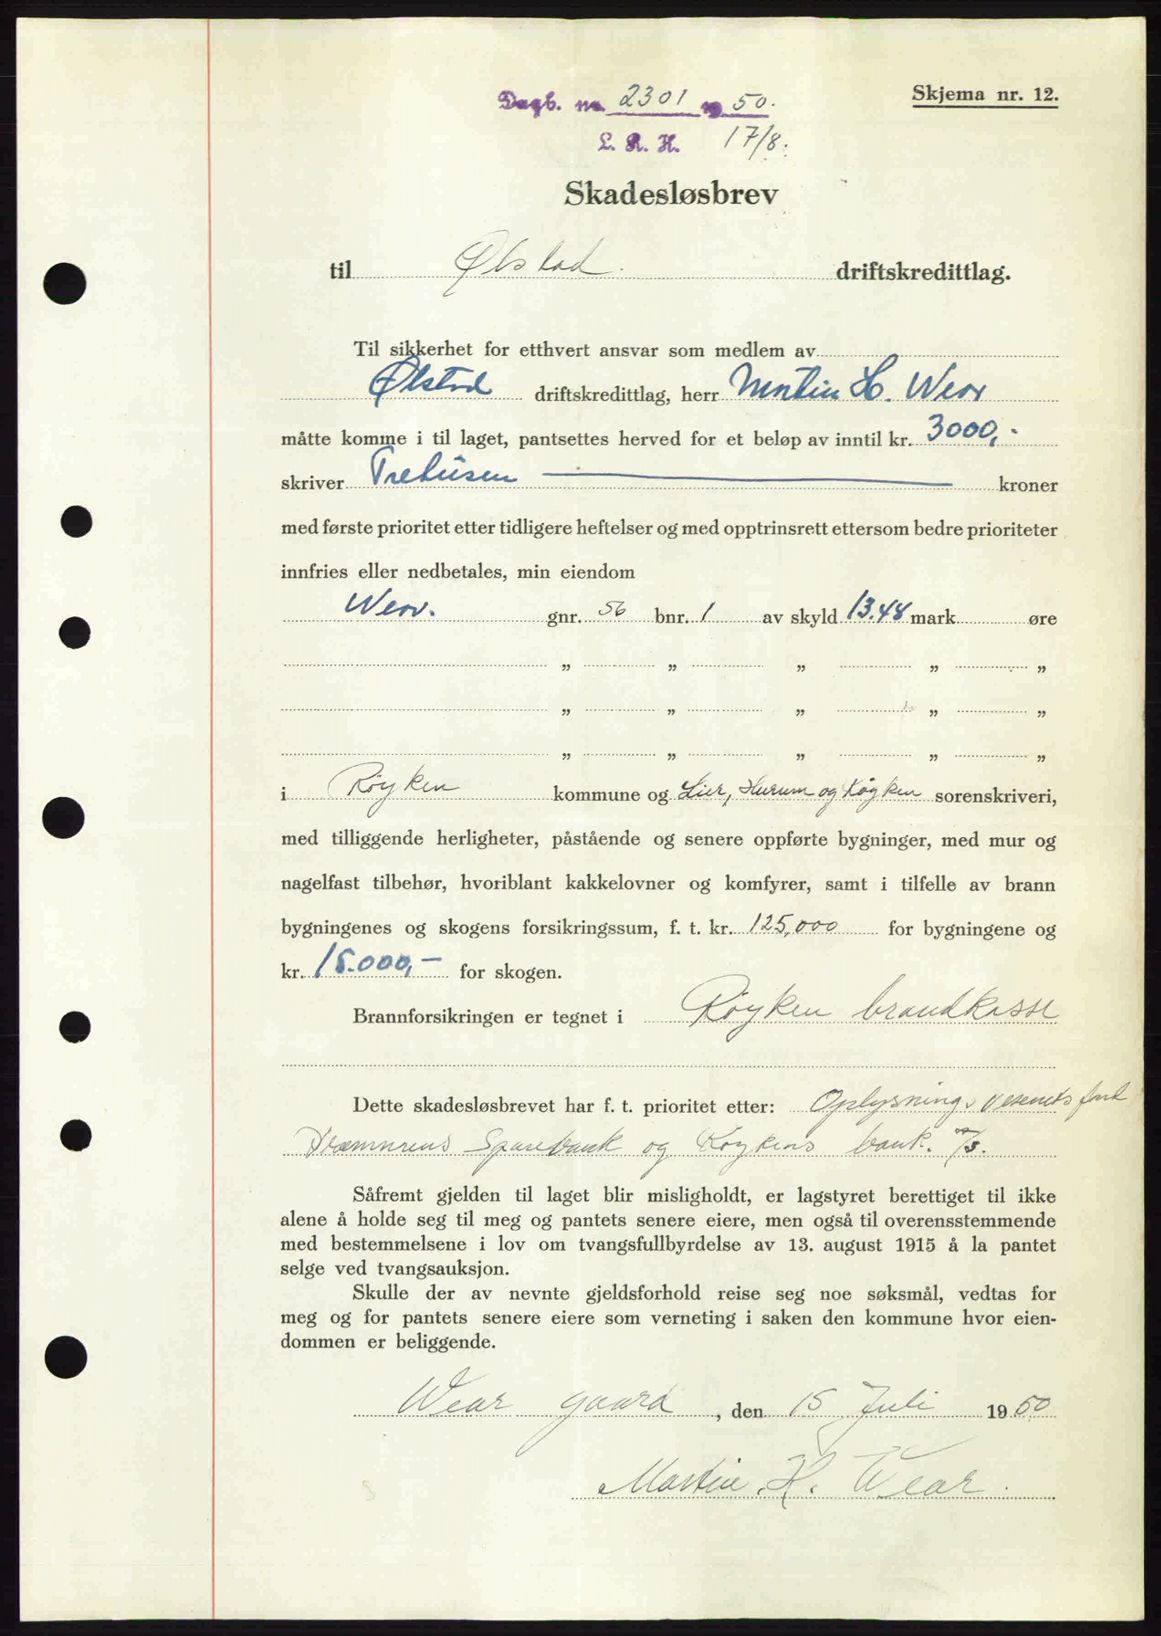 Skjema nr. 12.
Dagb. nr. 2301 19 50.
L. R. H. 17/8.
Skadesløsbrev
til Ølstad driftskredittlag.
Til sikkerhet for etthvert ansvar som medlem av
Ølstad driftskredittlag, herr Martin H. Wear
måtte komme i til laget, pantsettes herved for et beløp av inntil kr. 3000,-
skriver Tretusen kroner
med første prioritet etter tidligere heftelser og med opptrinsrett ettersom bedre prioriteter
innfries eller nedbetales, min eiendom
Wear. gnr. 56 bnr. 1 av skyld 13.48 mark øre
„ „ „ „ „
„ „ „ „ „
„ „ „ „ „
i Røyken kommune og Lier, Hurum og Røyken sorenskriveri,
med tilliggende herligheter, påstående og senere oppførte bygninger, med mur og
nagelfast tilbehør, hvoriblant kakkelovner og komfyrer, samt i tilfelle av brann
bygningenes og skogens forsikringssum, f. t. kr. 125,000 for bygningene og
kr. 15.000,- for skogen.
Brannforsikringen er tegnet i Røyken brandkasse
Dette skadesløsbrevet har f. t. prioritet etter: Oplysningsvesenets fond
Drammens Sparebank og Røykens bank. A/S.
Såfremt gjelden til laget blir misligholdt, er lagstyret berettiget til ikke
alene å holde seg til meg og pantets senere eiere, men også til overensstemmende
med bestemmelsene i lov om tvangsfullbyrdelse av 13. august 1915 å la pantet
selge ved tvangsauksjon.
Skulle der av nevnte gjeldsforhold reise seg noe søksmål, vedtas for
meg og for pantets senere eiere som verneting i saken den kommune hvor eien-
dommen er beliggende.
Wear gaard, den 15 Juli 1950
Martin H. Wear.